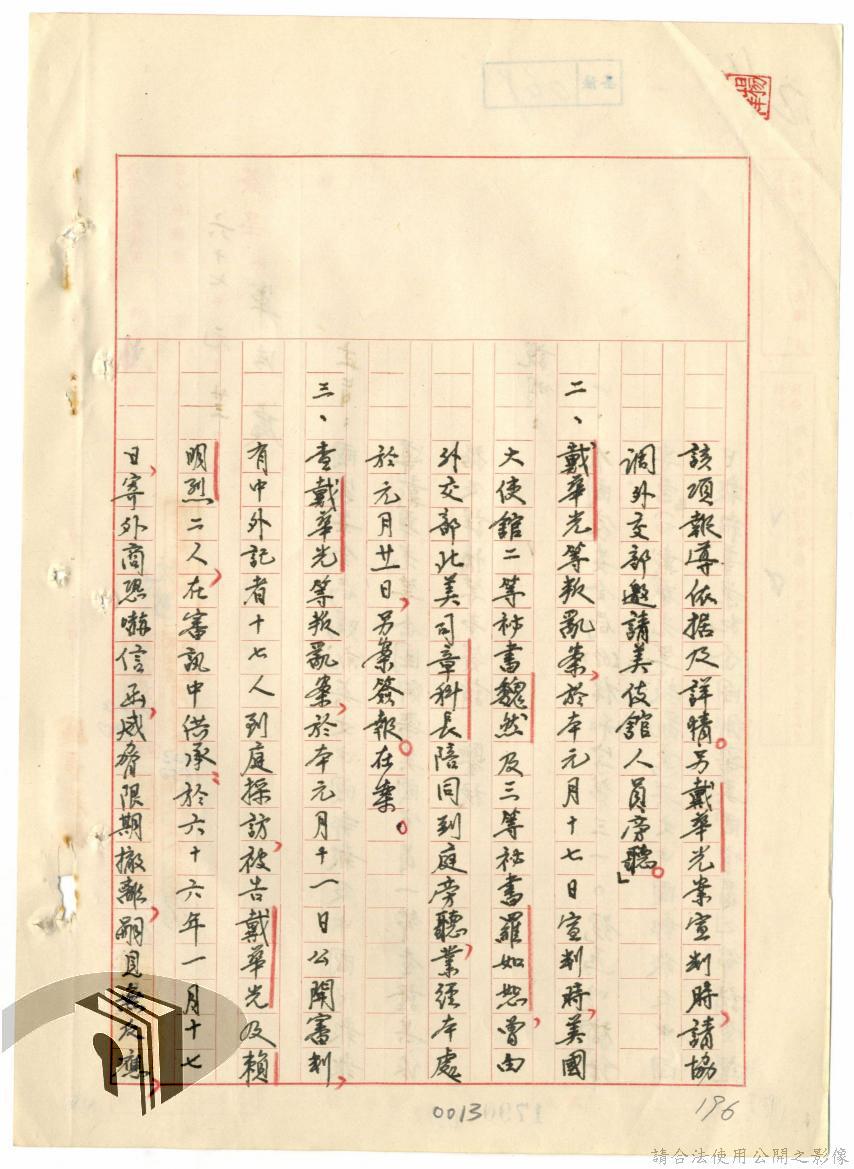 該項報導依据及詳情。另戴華光案宣判時,請協
調外交部邀請美使館人員旁聽。」
二、戴華光等叛亂案,於本元月十七日宣判時,美國
大使館二等祕書魏然及三等祕書羅如恕,曾由
外交部北美司章科長陪同到庭旁聽,業經本處
於元月廿日,另案簽報。在案。
三、查戴華光等叛亂案,於本元月十一日公開審判,
有中外記者十七人到庭採訪,被告戴華光及賴
明烈二人,在審訊中供承:於六十六年一月十七
日,寄外商恐嚇信函,威脅限期撤離,嗣見無反應,
0013
196
請合法使用公開之影像